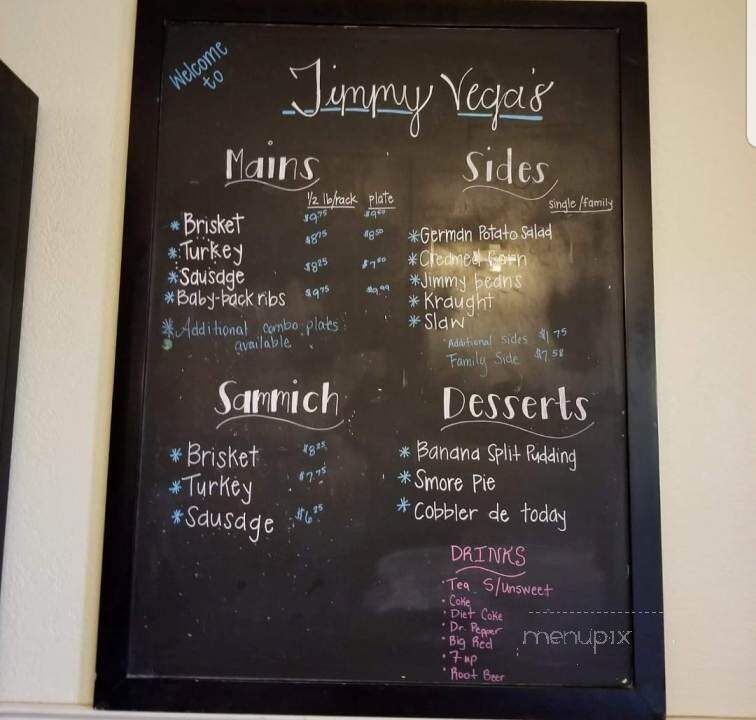 Welcome
to
Jimmy Vega's
Mains
1/2 lb/rack plate
* Brisket $9.75
* Turkey $8.75 $8.50
* Sausage $8.25
* Baby-back ribs $9.75 $9.99
* Additional combo plates
available
Sides
single/family
* German Potato Salad
* Creamed Corn
* Jimmy beans
* Kraught
* Slaw
Additional sides $1.75
Family Side $7.58
Sammich
* Brisket $8.25
* Turkey $7.75
* Sausage
Desserts
* Banana Split Pudding
* Smore Pie
* Cobbler de today
DRINKS
· Tea S/Unsweet
· Coke
· Diet Coke
· Dr. Pepper
· Big Red
· 7-up
· Root Beer
menupix